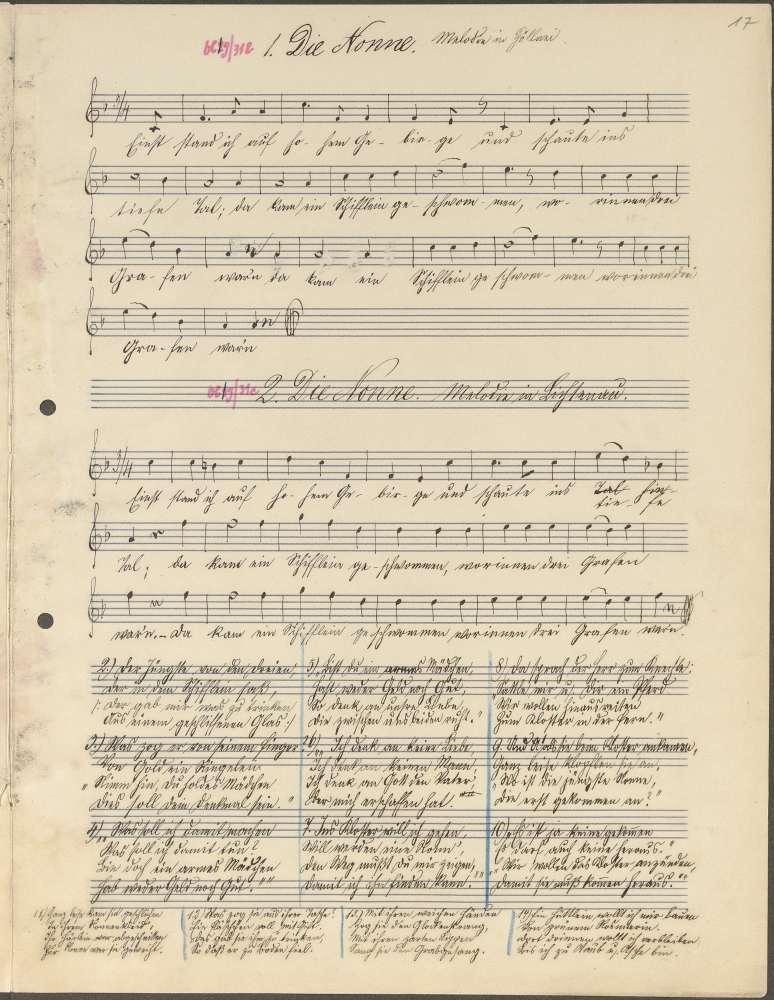 17
1. Die Nonne. Melodie in Göllnei.
3/4
Einst stand ich auf ho- hem Ge- bir- ge und schaute ins
tiefe Tal; da kam ein Schifflein ge- schwom- men, wo- rinnen drei
Gra- fen warn da kam ein Schifflein ge schwom- men worinnen drei
Gra- fen warn
2. Die Nonne. Melodie in Lichtenau.
3/4
Einst stand ich auf ho- hem Ge- bir- ge und schaute ins
tie- fe
Tal; da kam ein Schifflein ge- schwommen, worinnen drei Grafen
warn. – Da kam ein Schifflein geschwommen worinnen drei Grafen warn.
2.) Der Jüngste von den dreien,
Der in dem Schifflein saß,
|: Der gab mir was zu trinken
Aus einem geschliffenen Glas :|
3.) Was zog er von seinem Finger?
Von Gold ein Ringelein
"Nimm hin, du holdes Mädchen
Dies soll dein Denkmal sein."
4.) "Was soll ich damit machen
Was soll ich damit tun?
Bin doch ein armes Mädchen
Hab weder Geld noch Gut."
5.) "Bist du ein armes Mädchen,
Hast weder Geld noch Gut,
So denk an unsre Liebe,
Die zwischen uns beiden ruht."
6.) "Ich denk an keine Liebe,
Ich denk an keinen Mann,
Ich denk an Gott den Vater,
Der mich erschaffen hat."
7. Ins Kloster will ich gehen,
Will werden eine Nonn',
Den Weg mußt du mir zeigen,
Damit ich ihn finden kann."
8.) Da sprach der Herr zum Knechte:
"Sattle mir u. dir ein Pferd
Wir wollen hinausreiten
Zum Kloster in der Fern."
9. Und als sie beim Kloster ankamen,
Ganz leise klopften sie an,
"Wo ist die jüngste Nonne,
Die erst gekommen an?"
10.) "Es ist ja keine gekommen
So darf auch keine heraus."
"Wir wollen das Kloster anzünden,
Damit sie muß kommen heraus."
11.) Ganz leise kam sie geschlichen
In ihrem Nonnenkleid;
Ihr Härlein war abgeschnitten
Zur Nonn war sie geweiht.
12.) Was zog sie aus ihrer Tasche?
Ein Fläschchen voll mit Gift.
Das gab sie ihm zu trinken,
So daß er zu Boden fiel.
13.) Mit ihren weichen Händen
Zog sie den Glockenstrang,
Mit ihren zarten Lippen
Sang sie den Grabgesang.
14.) Ein Hüttlein wollt ich mir bauen
Von grünem Rosmarin.
Dort drinnen wollt ich verbleiben
Bis ich zu Staub u. Asche bin.